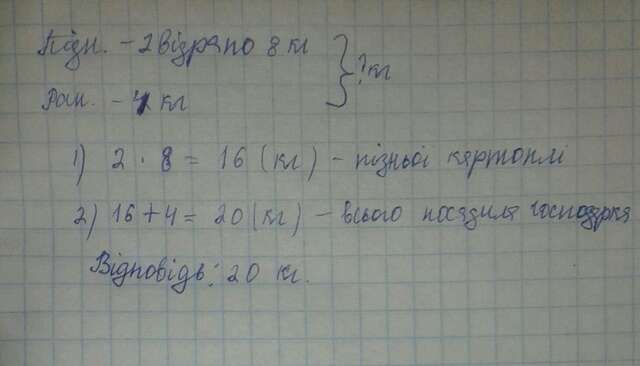 Пізн. - 2 відра по 8 кг
Ран. - 4 кг
? кг
1) 2 · 8 = 16 (кг) - пізньої картоплі
2) 16 + 4 = 20 (кг) - всього посадила господарка
Відповідь: 20 кг.